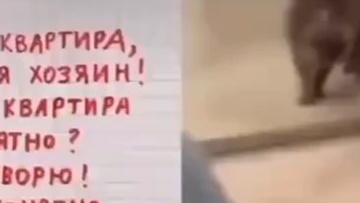 КВАРТИРА,
Я ХОЗЯИН!
КВАРТИРА
ЯТНО?
ВОРЮ!